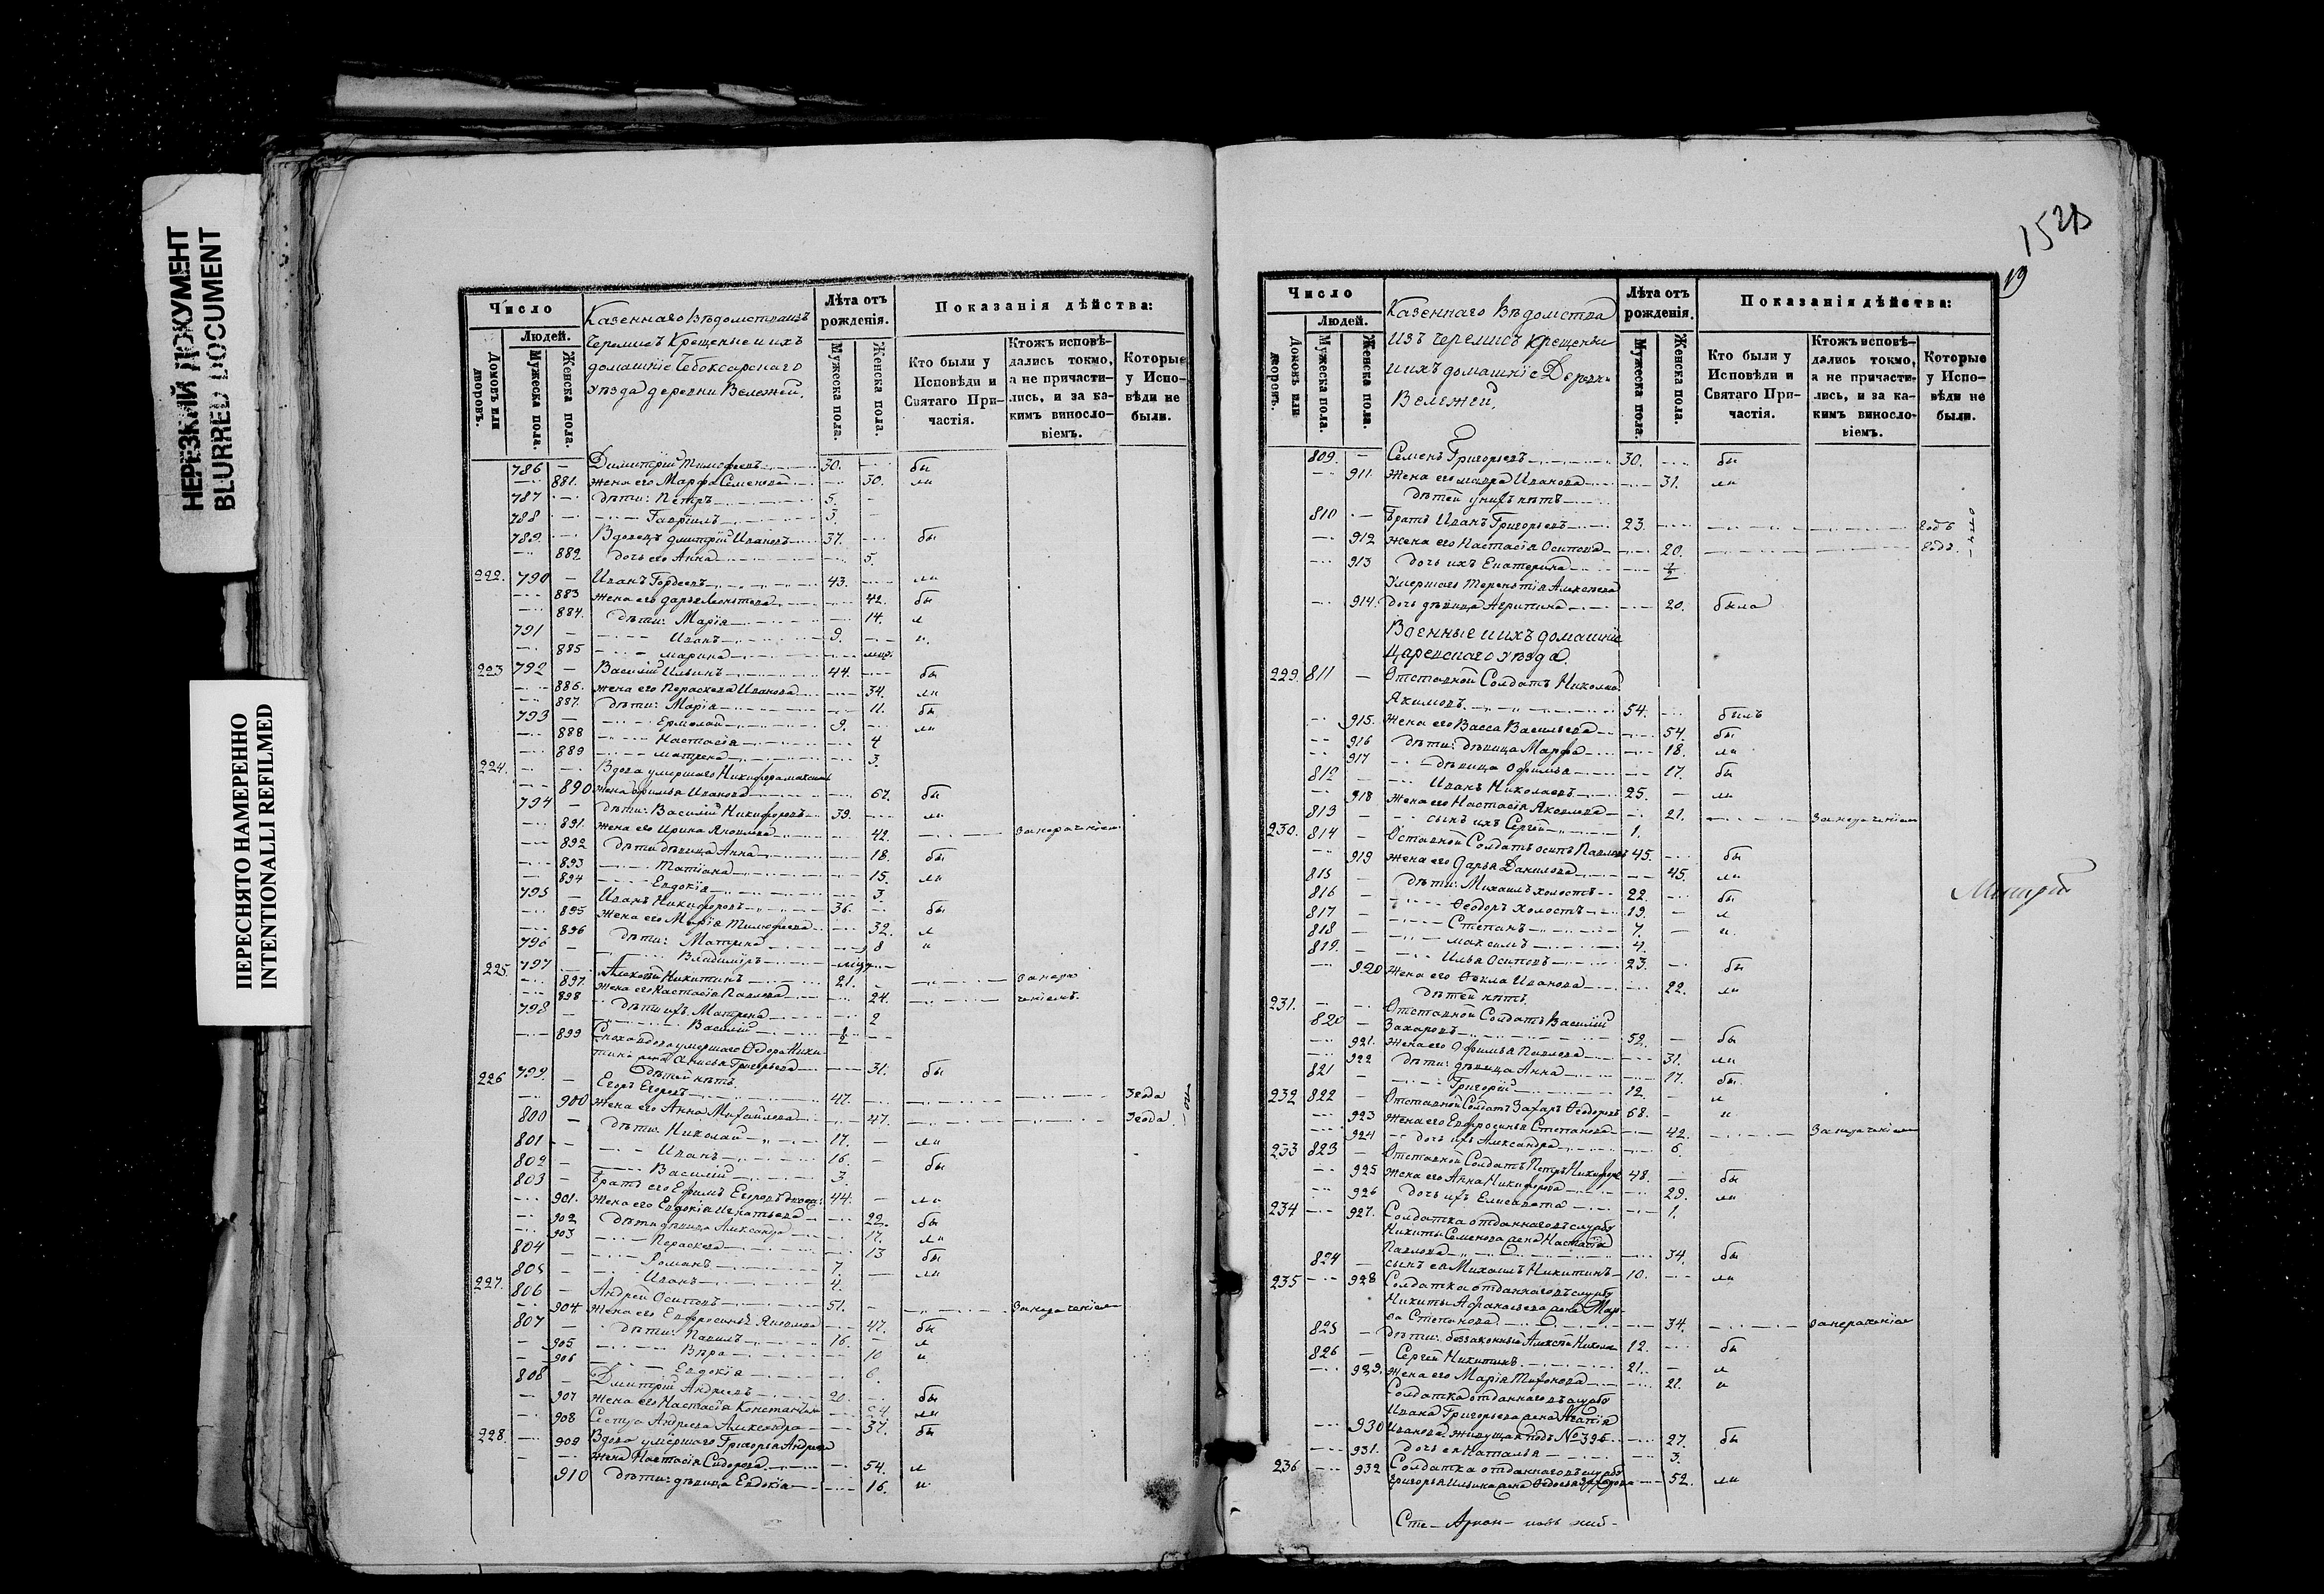 НЕРЕЗКИЙ ДОКУМЕНТ
BLURRED DOCUMENT
ПЕРЕСНЯТО НАМЕРЕННО
INTENTIONALLI REFILMED
Число
Людей.
Домовъ или дворовъ.
Мужеска пола.
Женска пола.
Казеннаго Вѣдомства изъ
Черемисъ Крещеные и ихъ
домашніе Чебоксарскаго
Уѣзда деревни Вележей.
Лѣта отъ рожденія.
Мужеска пола.
Женска пола.
Показанія дѣйства:
Кто были у Исповѣди и Святаго Причастія.
Ктожъ исповѣдались токмо, а не причастились, и за какимъ винословіемъ.
Которые у Исповѣди не были.
786 — Димитрій Тимофеевъ 30. бы
881. жена его Марфа Семенова 30. ли
787 дѣти: Петръ 5.
788 Гавріилъ 3.
789 Вдовецъ Дмитрій Ивановъ 37. бы
882 дочь его Анна 5.
222. 790 — Иванъ Гордеевъ 43. ли
883 жена его Дарья Леонтьева 42. бы
884. дѣти: Марія 14. л
791 — Иванъ 9. и.
885 Марина
223 792 — Василій Ильинъ 44. бы
886. жена его Параскева Иванова 34. ли
887. дѣти: Марія 11. бы
793 — Ермолай 9. ли
888 Настасія 4
889 Матрена 3.
224. Вдова умершаго Никифора
890 жена Афимья Иванова 67. бы
794 — дѣти: Василій Никифоровъ 39. ли
891. жена его Ирина Яковлева 42. за нерачніемъ
892 дѣти дѣвица Анна 18. бы
893 Татіана 15. ли
894 Евдокія 3.
795 — Иванъ Никифоровъ 36. бы
895 жена его Марія Тимофеева 32. л
896 дѣти: Матрена 8 и
796 — Владимиръ
225. 797 Алексѣй Никитинъ 21. за нера
897. жена его Настасія Павлова 24. ченіемъ.
898 дѣти ихъ Матрена 2
798 — Василій ½
899 Сноха вдова умершаго Ѳедора Ники-
тина жена Анисья Григорьева 31. бы
дѣтей нѣтъ.
226 799. — Егоръ Егоровъ 47. 3 года
900 жена его Анна Михайлова 47. 3 года
800 — дѣти: Николай 17. — ли
801 — Иванъ 16. — бы
802 — Василій 3.
803 — Братъ его Ефимъ Егоровъ 44. — ли
901. жена его Евдокія Игнатьева 22. бы
902 дѣти дѣвица Александра 17. ли
903 Параскева 13 бы
804 — Романъ 7. — ли
805 — Иванъ 4.
227. 806 — Андрей Осиповъ 51. за нерачніемъ
904. жена его Евфросинья Яковлева 47. бы
807 — дѣти: Павелъ 16. — л
905 Вѣра 10 и
906 Евдокія 6.
808 — Дмитрій Андреевъ 20. бы
907 жена его Настасія ли
908 Сестра Андреева Александра 37. бы
228. 909 Вдова умершаго Григорья Андреева
жена Настасія Сидорова 54. л
910 дѣти: дѣвица Евдокія 16. и
19
Число
Людей.
Домовъ или дворовъ.
Мужеска пола.
Женска пола.
Казеннаго Вѣдомства
изъ черемисъ крещеные
и ихъ домашніе Деревни
Вележей.
Лѣта отъ рожденія.
Мужеска пола.
Женска пола.
Показанія дѣйства:
Кто были у Исповѣди и Святаго Причастія.
Ктожъ исповѣдались токмо, а не причастились, и за какимъ винословіемъ.
Которые у Исповѣди не были.
809. — Семенъ Григорьевъ 30. бы
911. жена его Мавра Иванова 31. ли
дѣтей у нихъ нѣтъ
810 — Братъ Иванъ Григорьевъ 23.
912 жена его Настасія Осипова 20.
913 дочь ихъ Екатерина ½
умершаго Терентія Алексѣева
914. дочь дѣвица Агрипина 20. была
Военные и ихъ домашніе
229. 811 — Отставной Солдатъ Николай
Якимовъ 54. былъ
915. жена его Васса Васильева 54. бы
916 дѣти: дѣвица Марфа 18. ли
917 дѣвица Офимья 17. бы
812 — Иванъ Николаевъ 25. — ли
918 жена его Настасія Яковлева 21. за нерачніемъ
813 — сынъ ихъ Сергей 1.
230. 814 — Отставной Солдатъ Осипъ Павловъ 45. бы
919 жена его Дарья Данилова 45. ли
815 — дѣти: Михаилъ холостъ 22. бы
816 — Ѳеодоръ холостъ 19. — л
817 — Степанъ 7. — и.
818 — Максимъ 4.
819. — Илья Осиповъ 23. — бы
920 жена его Ѳекла Иванова 22. ли
дѣтей нѣтъ.
231. Отставной Солдатъ Василій
820 — Захаровъ 52. — бы
921. жена его Афимья Павлова 31. ли
922 дѣти: дѣвица Анна 17. бы
821 — Григорій 12. — л
232 822 — Отставной Солдатъ Захаръ Ѳеодоровъ 68. — и
923 жена его Евфросинья Степанова 42. за нерачніемъ
924 дочь ихъ Александра 6.
233 823 — Отставной Солдатъ Петръ Никифоровъ 48. — бы
925 жена его Анна Никифорова 29. ли
926 дочь ихъ Елисавета 1.
234 927. Солдатка отданнаго въ службу
Никиты Семенова жена Настасія
Павлова 34. бы
824 — сынъ ея Михаилъ Никитинъ 10. ли
235 928 Солдатка отданнаго въ службу
Никиты Афанасьева жена Мар-
ѳа Степанова 34. за нерачніемъ
825 — дѣти: беззаконный Алексѣй 12. бы
826 — Сергей Никитинъ 21. — л
929. жена его Марія Тихонова 21. и
Солдатка отданнаго въ службу
Ивана Григорьева жена Агапія
930 Иванова живущая подъ № 395 27. бы
931. дочь ея Наталья 3.
236 932 Солдатка отданнаго въ службу
Григорья Ильина жена 52. ли